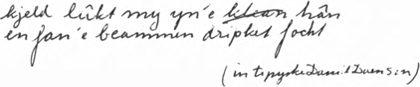 kjeld lûkt my yn'e hân
en fan'e beammen dripket focht
(in tipyske Daniël Daen sin)